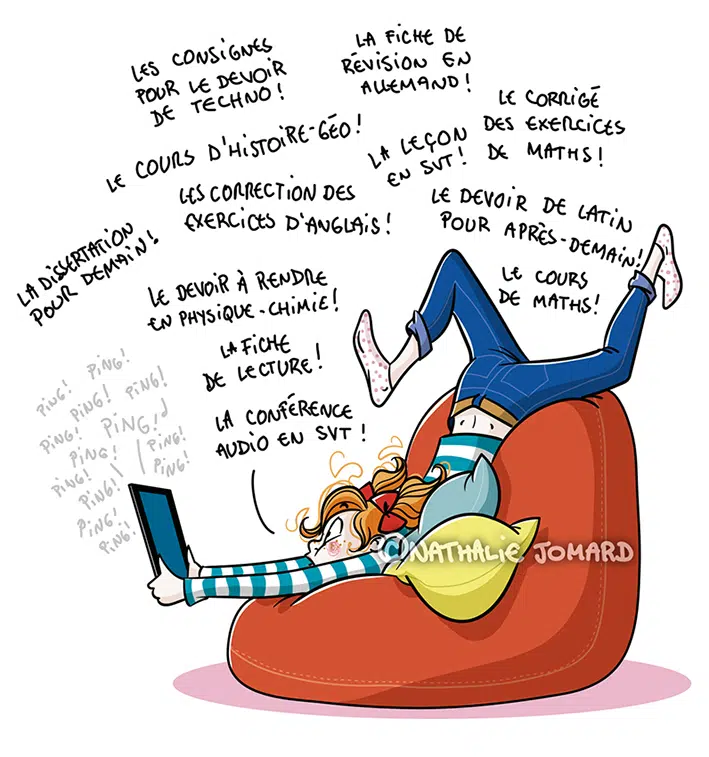 LES CONSIGNES
POUR LE DEVOIR
DE TECHNO !
LA FICHE DE
RÉVISION EN
ALLEMAND !
LE CORRIGÉ
DES EXERCICES
DE MATHS !
LE COURS D'HISTOIRE-GÉO !
LA LEÇON
EN SVT !
LES CORRECTION DES
EXERCICES D'ANGLAIS !
LE DEVOIR DE LATIN
POUR APRÈS-DEMAIN !
LA DISSERTATION
POUR DEMAIN !
LE DEVOIR À RENDRE
EN PHYSIQUE-CHIMIE !
LE COURS
DE MATHS !
LA FICHE
DE LECTURE !
LA CONFÉRENCE
AUDIO EN SVT !
PING! PING!
PING! PING!
PING! PING!
PING! PING!
PING! PING!
PING!
PING!
PING!
©NATHALIE JOMARD